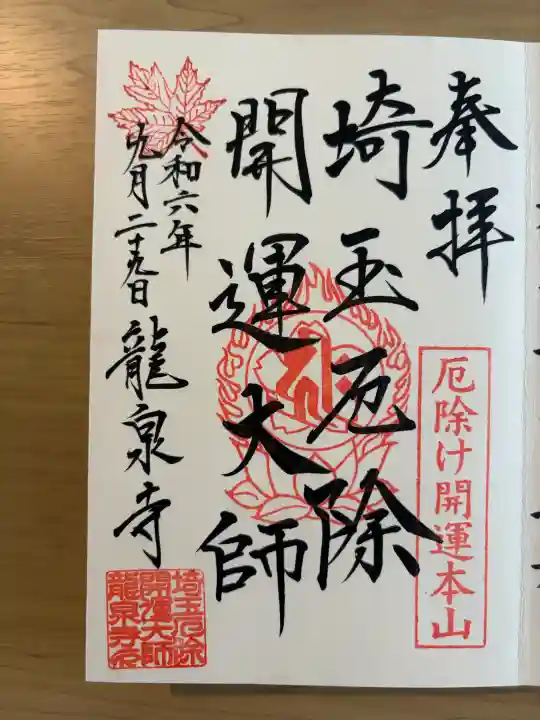 奉拝
厄除け開運本山
埼玉厄除
開運大師
令和六年
九月二十九日
龍泉寺
埼玉厄除
開運大師
龍泉寺印